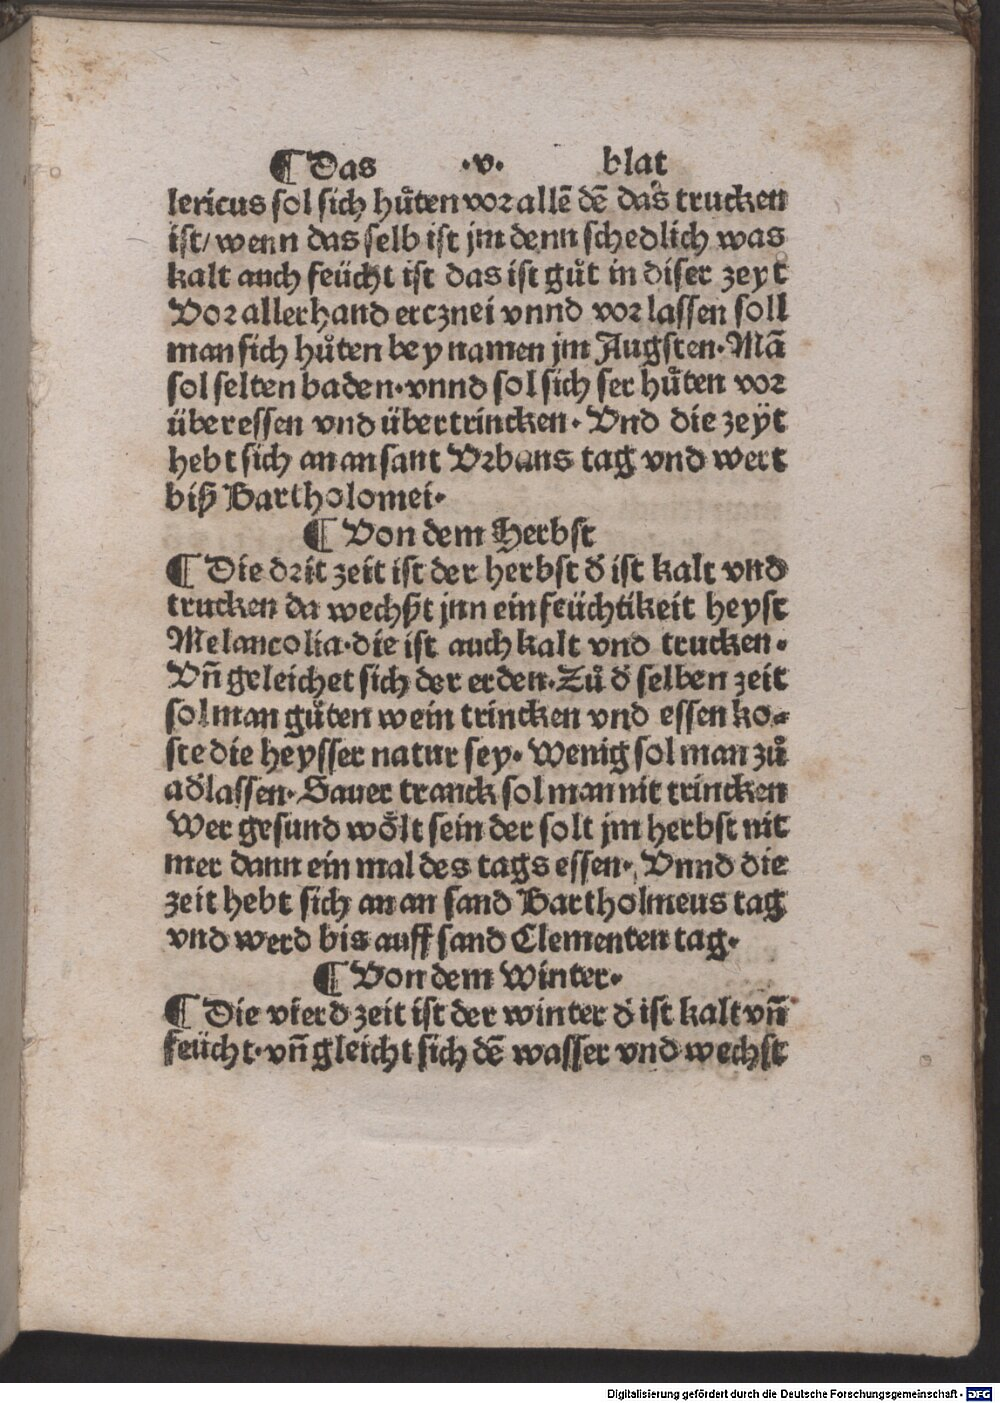 ¶ Das ·v· blat
lericus sol sich hůten vor allē dē das trucken
ist/ wenn das selb ist jm denn schedlich was
kalt auch feücht ist das ist gůt in diser zeyt
Vor allerhand ercznei vnnd vor lassen soll
man sich hůten bey namen jm Augsten· Mā
sol selten baden· vnnd sol sich ser hůten vor
überessen vnd übertrincken· Vnd die zeÿt
hebt sich an an sant Vrbans tag vnd wert
biß Bartholomei·
¶ Von dem Herbst
¶ Die drit zeit ist der herbst d̓ ist kalt vnd
trucken da wechßt jnn ein feüchtikeit heyst
Melancolia· die ist auch kalt vnd trucken·
Vñ geleichet sich der erden· Zů d̓ selben zeit
sol man gůten wein trincken vnd essen ko⸗
ste die heysser natur sey· Wenig sol man zů
ad̓lassen· Sauer tranck sol man nit trincken
Wer gesund wo̊lt sein der solt jm herbst nit
mer dann ein mal des tags essen· Vnnd die
zeit hebt sich an an sand Bartholmeus tag
vnd werd bis auff sand Clementen tag·
¶ Von dem Winter·
¶ Die vierd zeit ist der winter d̓ ist kalt vñ
feücht· vñ gleicht sich dē wasser vnd wechst
Digitalisierung gefördert durch die Deutsche Forschungsgemeinschaft - DFG